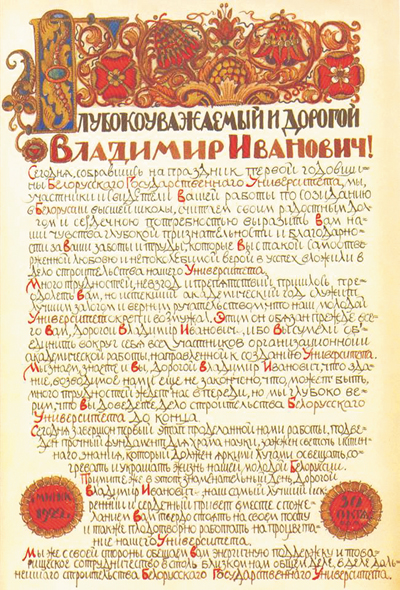 Глубокоуважаемый и дорогой
Владимир Иванович!
Сегодня, собравшись на праздник первой годовщи-
ны Белорусского Государственного Университета, мы,
участники и свидетели Вашей работы по созиданию
в Белоруссии высшей школы, считаем своим радостным дол-
гом и сердечною потребностью выразить Вам на-
ши чувства глубокой признательности и благодарно-
сти за Ваши заботы и труды, которые Вы с такой самоотвер-
женной любовью и непоколебимой верой в успех вложили в
дело строительства нашего Университета.
Много трудностей, невзгод и препятствий пришлось, пре-
одолеть Вам, но истекший академический год служит
лучшим залогом и верным ручательством, что наш молодой
Университет окреп и возмужал. Этим он обязан прежде все-
го Вам, Дорогой Владимир Иванович, ибо Вы сумели об-
единить вокруг себя всех участников организационной и
академической работы, направленной к созданию Университета.
Мы знаем, знаете и Вы, Дорогой Владимир Иванович, что зда-
ние, возводимое нами, еще не закончено, что, может быть,
много трудностей ждет нас впереди, но мы глубоко ве-
рим, что Вы доведете дело строительства Белорусского
Университета до конца.
Сегодня завершен первый этап проделанной нами работы, подве-
ден прочный фундамент для храма науки, зажжен светоч истин-
ного знания, который должен яркими лучами освещать, со-
гревать и украшать жизнь нашей молодой Белоруссии.
Примите же в этот знаменательный День, Дорогой
Владимир Иванович, наш самый лучший иск-
ренний и сердечный привет вместе с поже-
ланием Вам твердо стоять на своем посту
и также плодотворно работать на процвета-
ние нашего Университета.
Минск
1922 г.
30
октября
Мы же с своей стороны обещаем Вам энергичную поддержку и това-
рищеское сотрудничество в столь близком нам общем деле, в деле даль-
нейшего строительства Белорусского Государственного Университета.